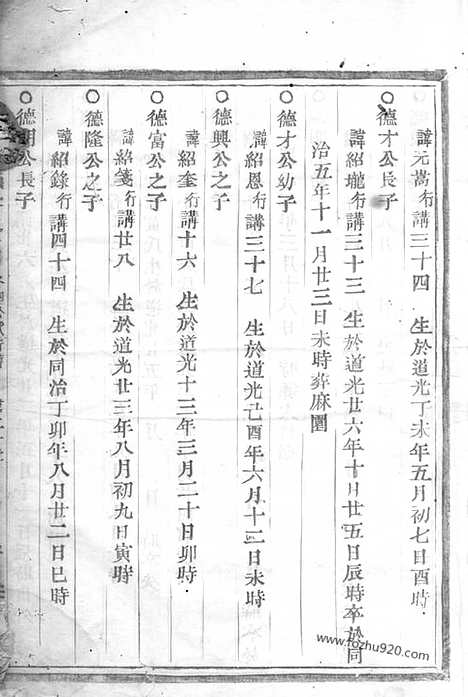 諱元蒿行講三十四　生於道光丁未年五月初七日酉時
○德才公長子
諱紹壠行講三十三　生於道光廿六年十月廿五日辰時卒於同
治五年十一月廿三日未時葬麻園
○德才公幼子
諱紹恩行講三十七　生於道光己酉年六月十二日未時
○德興公之子
諱紹奎行講十六　生於道光十三年三月二十日卯時
○德富公之子
諱紹箋行講廿八　生於道光廿三年八月初九日寅時
○德隆公之子
諱紹錄行講四十四　生於同治丁卯年八月廿二日巳時
○德明公長子
www.fozhu920.com